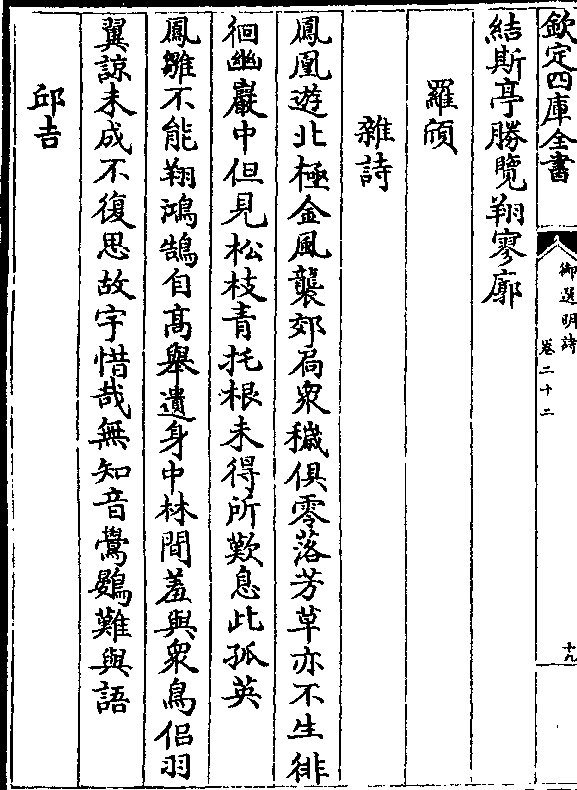 欽定四庫全書
御選明詩
卷二十二
十九
結斯亭勝覽翔寥廓
羅頎
雜詩
鳳凰遊北極金風襲郊扃衆穢俱零落芳草亦不生徘
徊幽巖中但見松枝青托根未得所歎息此孤英
鳳雛不能翔鴻鵠自高舉遺身中林間羞與衆鳥侣羽
翼諒未成不復思故宇惜哉無知音鸎鷃難與語
邱吉